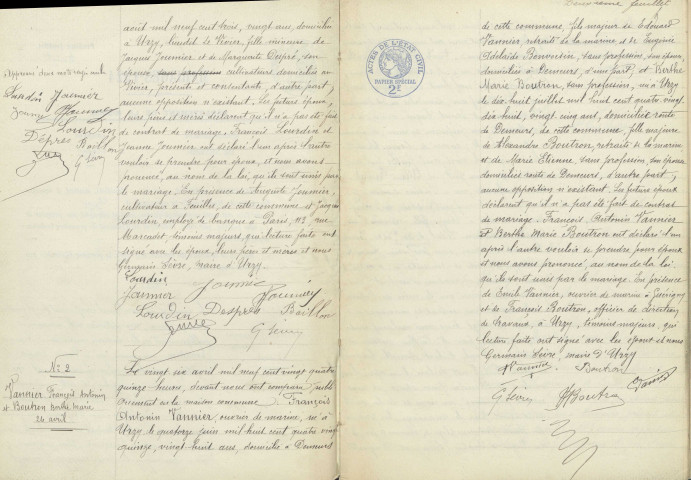 août mil neuf cent trois, vingt ans, domiciliée
à Urzy, hameau du Vivier, fille mineure de
Jacques Joumier et de Marguerite Després, son
épouse, sans profession cultivateurs domiciliés au
Vivier, présents et consentants, d'autre part;
aucune opposition n'existant. Les futurs époux,
leurs pères et mères déclarent qu'il n'a pas été fait
de contrat de mariage. François Lourdin et
Jeanne Joumier ont déclaré l'un après l'autre
vouloir se prendre pour époux, et nous avons
prononcé, au nom de la loi, qu'ils sont unis par
le mariage. En présence de Auguste Joumier,
cultivateur à Feuilles, de cette commune et Jacques
Lourdin, employé de banque à Paris, 113 rue
Marcadet, témoins majeurs, qui lecture faite ont
signé avec les époux, leurs pères et mères et nous
Germain Sèvre, maire d'Urzy.
Lourdin
Joumier Joumier
Lourdin Després Baillon
G Sèvre
Approuvé deux mots rayés nuls
Lourdin Joumier
Lourdin
Després Baillon
G Sèvre
N° 2
Vannier François Antonin
et Boutron Berthe Marie
26 avril
Le vingt six avril mil neuf cent vingt quatre
quinze heures, devant nous ont comparu publi-
quement en la maison commune François
Antonin Vannier, ouvrier de marine, né à
Urzy le quatorze juin mil huit cent quatre vingt
quinze, vingt-huit ans, domicilié à Demeurs
Douzième feuillet
ACTES DE L'ÉTAT CIVIL
PAPIER SPÉCIAL
2F
de cette commune, fils majeur de Edouard
Vannier, retraité de la marine et de Eugénie
Adélaïde Bonventin, sans profession, son épouse
domiciliés à Demeurs, d'une part; et Berthe
Marie Boutron, sans profession, née à Urzy
le dix huit juillet mil huit cent quatre vingt
dix huit, vingt cinq ans, domiciliée route
de Demeurs, de cette commune, fille majeure
de Alexandre Boutron, retraité de la marine
et de Marie Etienne, sans profession, son épouse
domiciliés route de Demeurs, d'autre part;
aucune opposition n'existant. Les futurs époux
déclarent qu'il n'a pas été fait de contrat
de mariage. François Antonin Vannier
et Berthe Marie Boutron ont déclaré l'un
après l'autre vouloir se prendre pour époux
et nous avons prononcé, au nom de la loi
qu'ils sont unis par le mariage. En présence
de Emile Vannier, ouvrier de marine à Guérigny
et de François Boutron, officier de direction
de travaux, à Urzy, témoins majeurs, qui
lecture faite ont signé avec les époux et nous
Germain Sèvre, maire d'Urzy
Vannier Boutron
G Sèvre Boutron Vannier